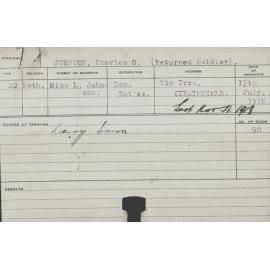 STUDENT
JOHNSON, Charles G. (Returned Soldier).
AGE RELIGION PARENT OR GUARDIAN OCCUPATION ADDRESS DATE OF ENTRANCE
22 Meth. Miss L. John- Dom. Tip Tree, 15th
son. Duties. STRATHFIELD. July,
1918
Left Nov 1918
COURSE OF TRAINING NO. OF ROOM
90
RESULTS